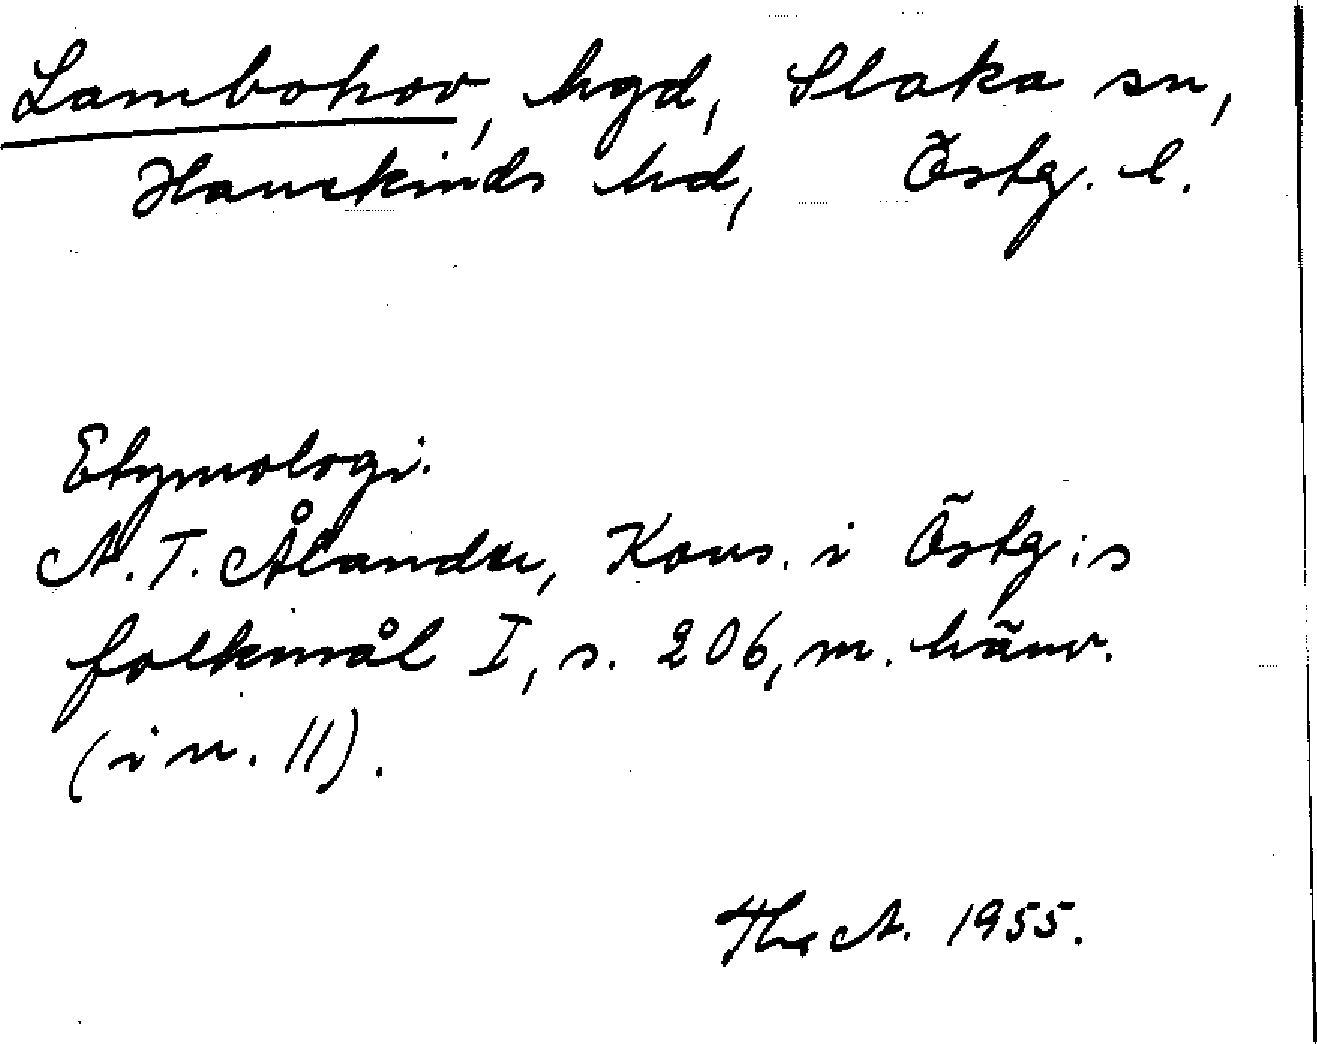 Lambohov, hgd, Slaka sn,
Hanekinds hd, Östg. l.
Etymologi.
A. T. Ålander, Kons. i Östg:s
folkmål I, s. 206, m. hänv.
(i n. 11).
Th. A. 1955.